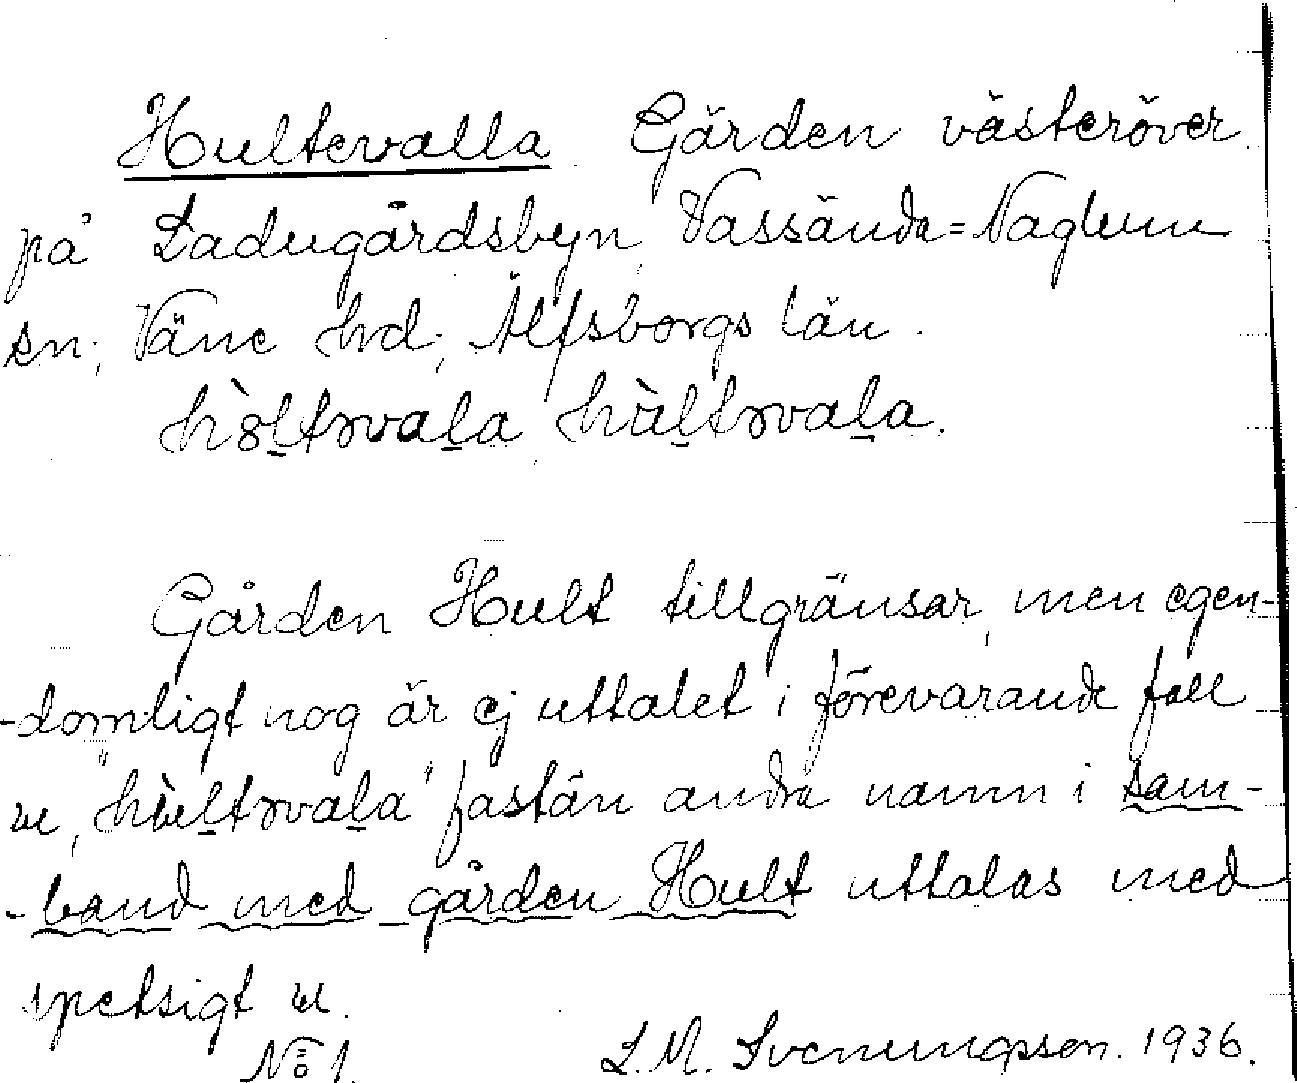 Hultevalla Gärden västeröver
på Ladugårdsbyn, Vassända=Naglum
sn; Väne hrd; Älfsborgs län.
Gården Hult tillgränsar, men egen-
-domligt nog är ej uttalet i förevarande fall
fastän andra namn i sam-
-band med gården Hult uttalas med
spetsigt u.
No 1. L. M. Svenungsson. 1936.